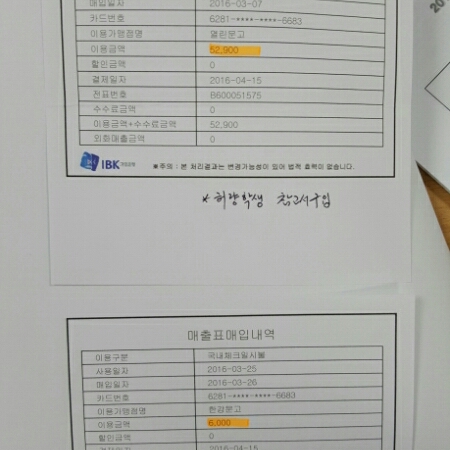 매입일자 2016-03-07
카드번호 6281-****-****-6683
이용가맹점명 열린문고
이용금액 52,900
할인금액 0
결제일자 2016-04-15
전표번호 B600051575
수수료금액 0
이용금액+수수료금액 52,900
외화매출금액 0
IBK 기업은행 *주의 : 본 처리결과는 변경가능성이 있어 법적 효력이 없습니다.
* 희망학생 참고서구입
매출표매입내역
이용구분 국내체크일시불
사용일자 2016-03-25
매입일자 2016-03-26
카드번호 6281-****-****-6683
이용가맹점명 한겸문고
이용금액 6,000
할인금액 0
결제일자 2016-04-15